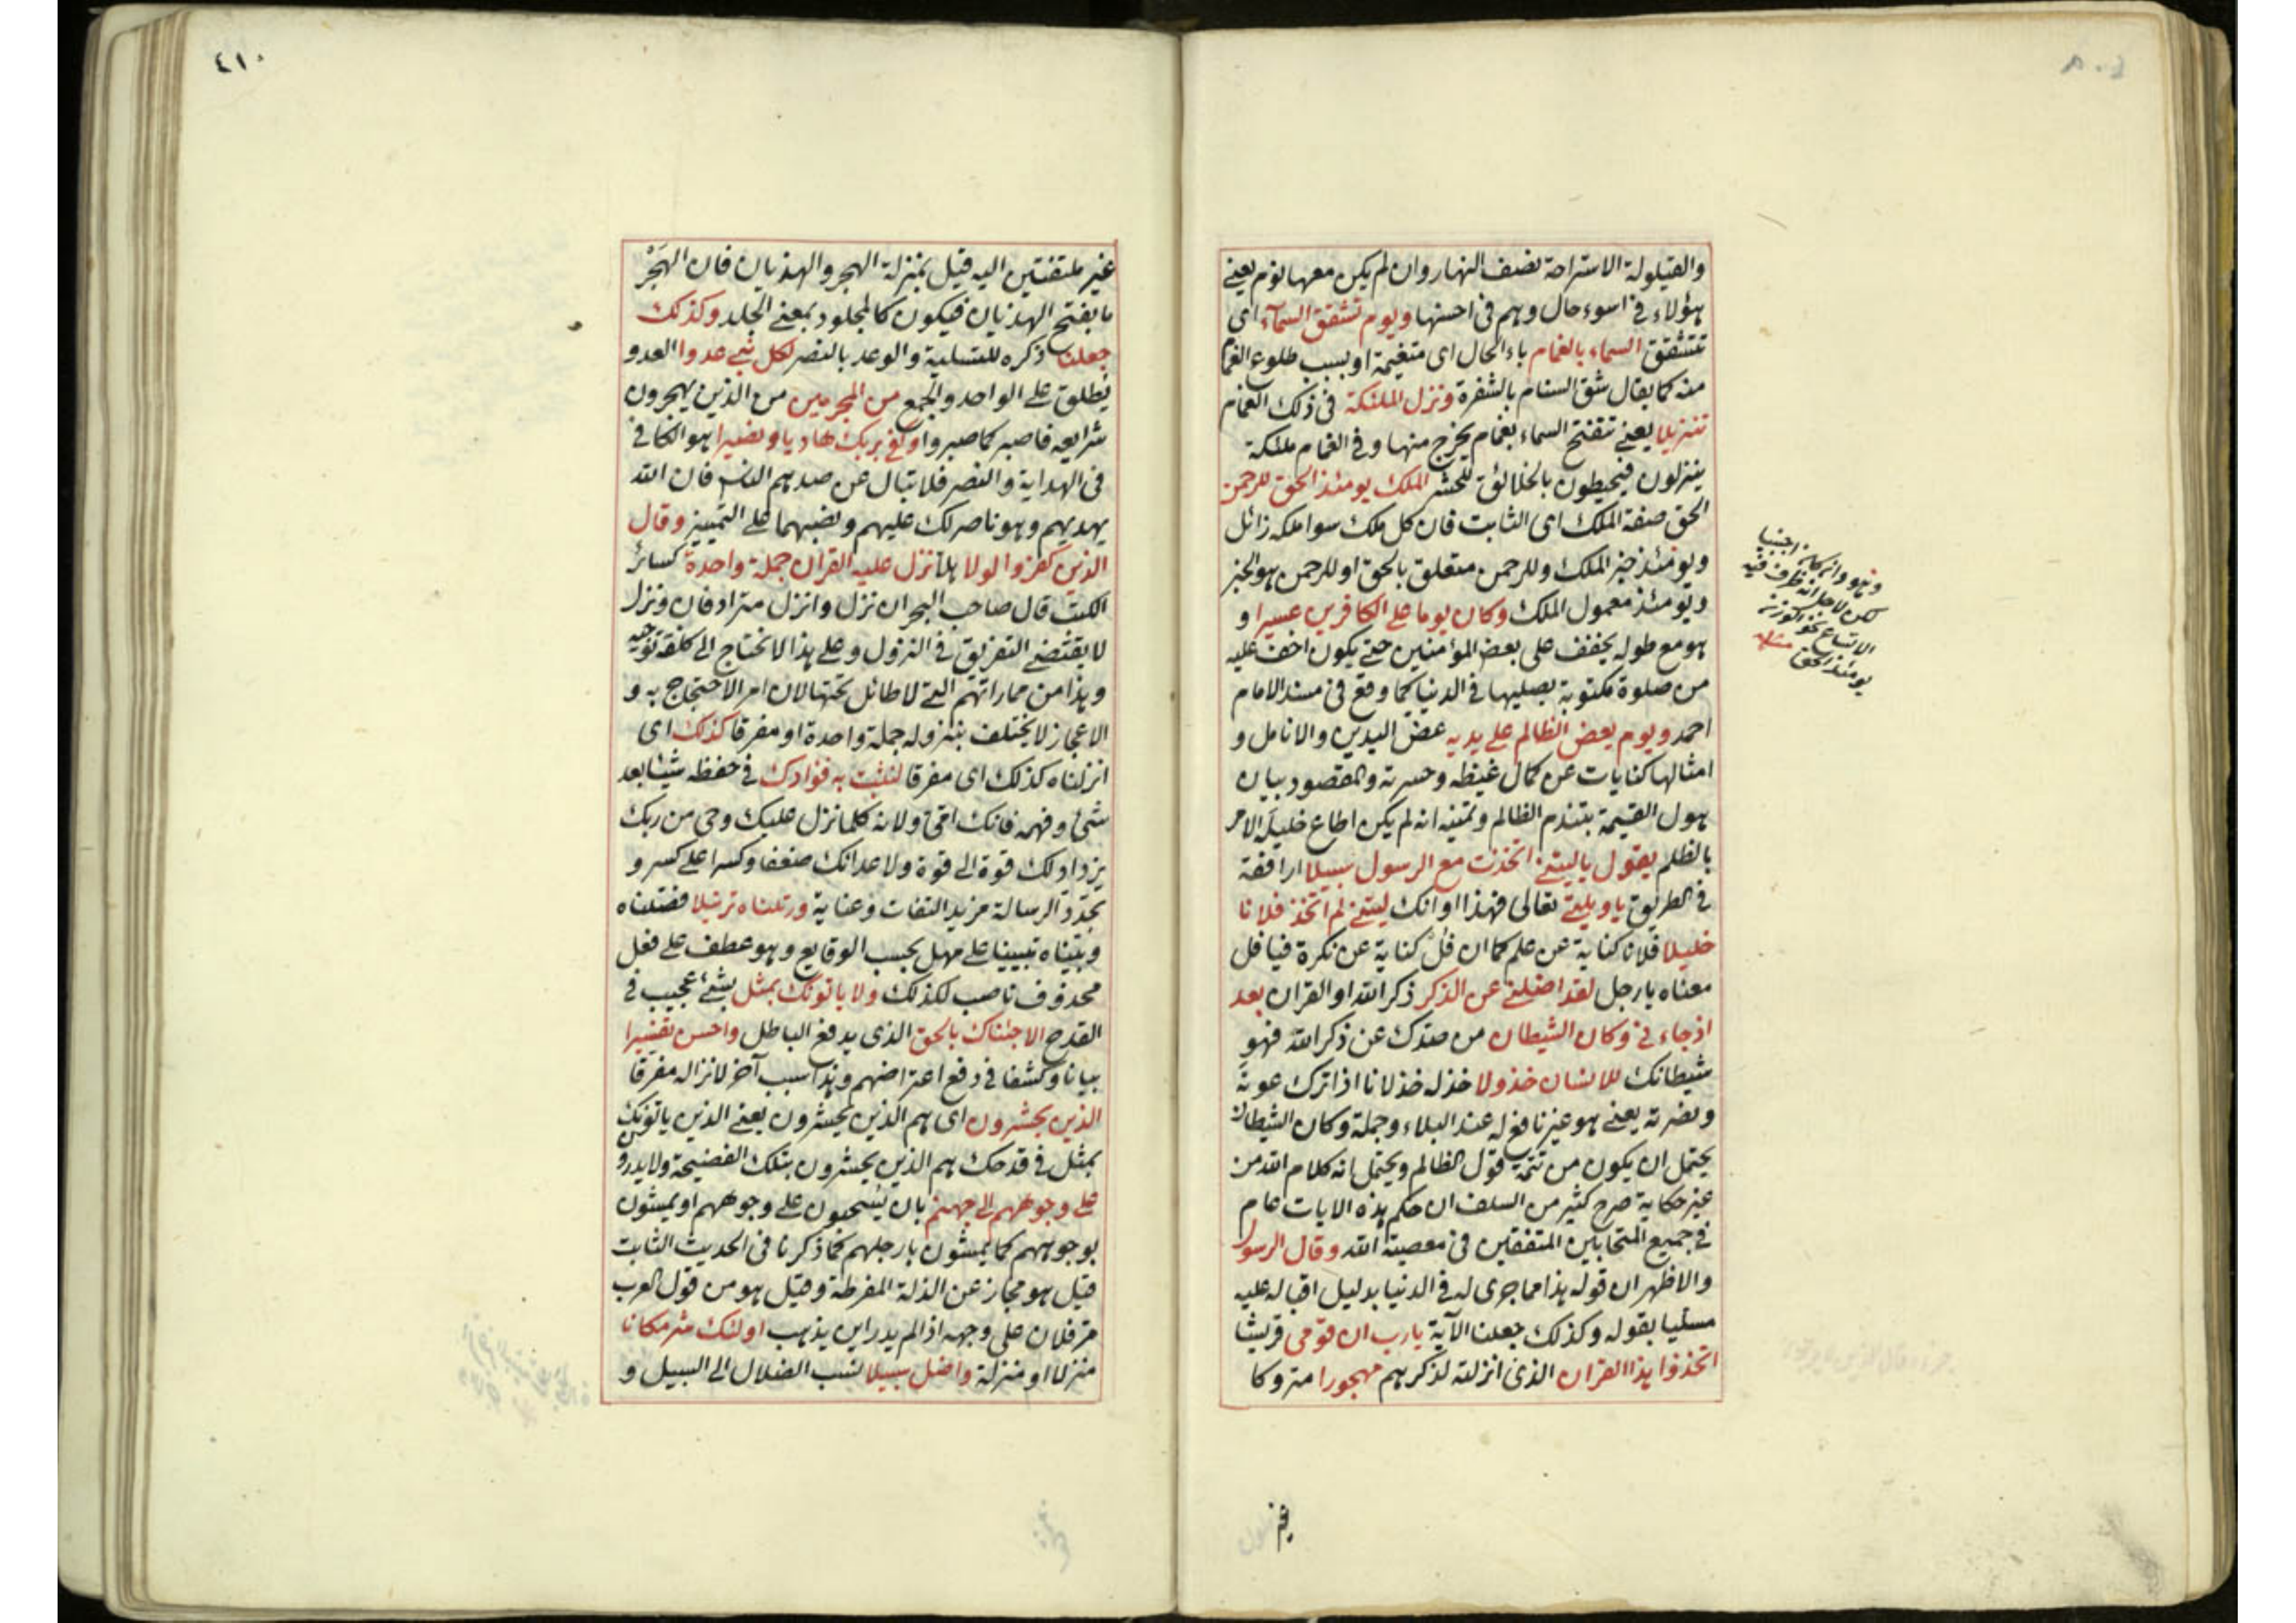 والقيلولة الاستراحة نصف النهار وان لم يكن معها نوم يعنى
هؤلاء فى اسوء حال وهم فى احسنها ويوم تشقق السمآء اى
تتشقق السماء بالغمام باء الحال اى متغيمة او بسبب طلوع الغمام
منه كما يقال شق السنام بالشفرة ونزل الملئكة فى ذلك الغمام
تنزيلا يعنى تتفتح السماء بغمام يخرج منها وفى الغمام ملئكة
ينزلون فيحيطون بالخلائق للحشر الملك يومئذ الحق للرحمن
الحق صفة الملك اى الثابت فان كل ملك سوا ملكه زائل
ويومئذ خبر الملك وللرحمن متعلق بالحق او للرحمن هو الخبر
ويومئذ معمول الملك وكان يوما على الكافرين عسيرا و
هو مع طوله يخفف على بعض المؤمنين حتى يكون اخف عليه
من صلوة مكتوبة يصليها فى الدنيا كما وقع فى مسند الامام
احمد ويوم يعض الظالم على يديه عض اليدين والانامل و
امثالها كنايات عن كمال غيظه وحسرته والمقصود بيان
هول القيمة بتندم الظالم وتمنيه انه لم يكن اطاع خليله الامر
بالظلم يقول ياليتنى اتخذت مع الرسول سبيلا ارافقه
فى الطريق ياويلتى تعالى فهذا اوانك ليتنى لم اتخذ فلانا
خليلا فلانا كناية عن علم كما ان فل كناية عن نكرة فيا فل
معناه يا رجل لقد اضلنى عن الذكر ذكر الله او القران بعد
اذ جاءنى وكان الشيطان من صدك عن ذكر الله فهو
شيطانك للانسان خذولا خذله خذلانا اذا ترك عونه
ونصرته يعنى هو غير نافع له عند البلاء وجملة وكان الشيطان
يحتمل ان يكون من تتمة قول الظالم ويحتمل انه كلام الله من
غير حكاية صرح كثير من السلف ان حكم هذه الايات عام
فى جميع المتحابين المتفقين فى معصية الله وقال الرسول
والاظهر ان قوله هذا مما جرى له فى الدنيا بدليل اقباله عليه
مسليا بقوله وكذلك جعلنا الآية يارب ان قومى قريشا
اتخذوا هذا القران الذى انزلته لذكرهم مهجورا متروكا
يومئذ الحق
غير
٤١٠
غير ملتفتين اليه قيل بمنزلة الهجر والهذيان فان الهَجْر
ما بفتح الهذيان فيكون كالمجلود بمعنى الجلد وكذلك
جعلنا ذكره للتسلية والوعد بالنصر لكل نبى عدوا العدو
يُطلق على الواحد والجمع من المجرمين من الذين يهجرون
شرايعه فاصبر كما صبروا وكفى بربك هاديا ونصيرا هو الكافى
فى الهداية والنصر فلا تبال عن صدهم الناس فان الله
يهديهم وهو ناصر لك عليهم ونصبهما على التمييز وقال
الذين كفروا لولا هلا نزل عليه القران جملة واحدة كسائر
الكتب قال صاحب البحر ان نزل وانزل مترادفان ونزل
لا يقتضى التفريق فى النزول وعلى هذا لا نحتاج الى كلفة توجيه
وهذا من مماراتهم التى لا طائل تحتها لان امر الاحتجاج به و
الاعجاز لا يختلف بنزوله جملة واحدة او مفرقا كذلك اى
انزلناه كذلك اى مفرقا لنثبت به فؤادك فى حفظه شيئا بعد
شئ وفهمه فانك امّى ولانه كلما نزل عليك وحى من ربك
يزداد لك قوة الى قوة ولاعدائك ضعفا وكسرا على كسر و
تجدّد الرسالة مزيد التفات وعناية ورتلناه ترتيلا فصّلناه
وبيّناه تبيينا على مهل بحسب الوقايع وهو عطف على فعل
محذوف ناصب لكذلك ولا ياتونك بمثل بشئ عجيب فى
القدح الا جئناك بالحق الذى يدفع الباطل واحسن تفسيرا
بيانا وكشفا فى دفع اعتراضهم وهذا سبب آخر لانزاله مفرقا
الذين يحشرون اى هم الذين يحشرون يعنى الذين ياتونك
بمثل فى قدحك هم الذين يحشرون بتلك الفضيحة ولا يدرون
على وجوههم الى جهنم بان يسحبون على وجوههم او يمشون
بوجوههم كما يمشون بارجلهم كما ذكرنا فى الحديث الثابت
قيل هو مجاز عن الذلة المفرطة وقيل هو من قول العرب
مر فلان على وجهه اذا لم يدر اين يذهب اولئك شر مكانا
منزلا او منزلة واضل سبيلا نسب الضلال الى السبيل و